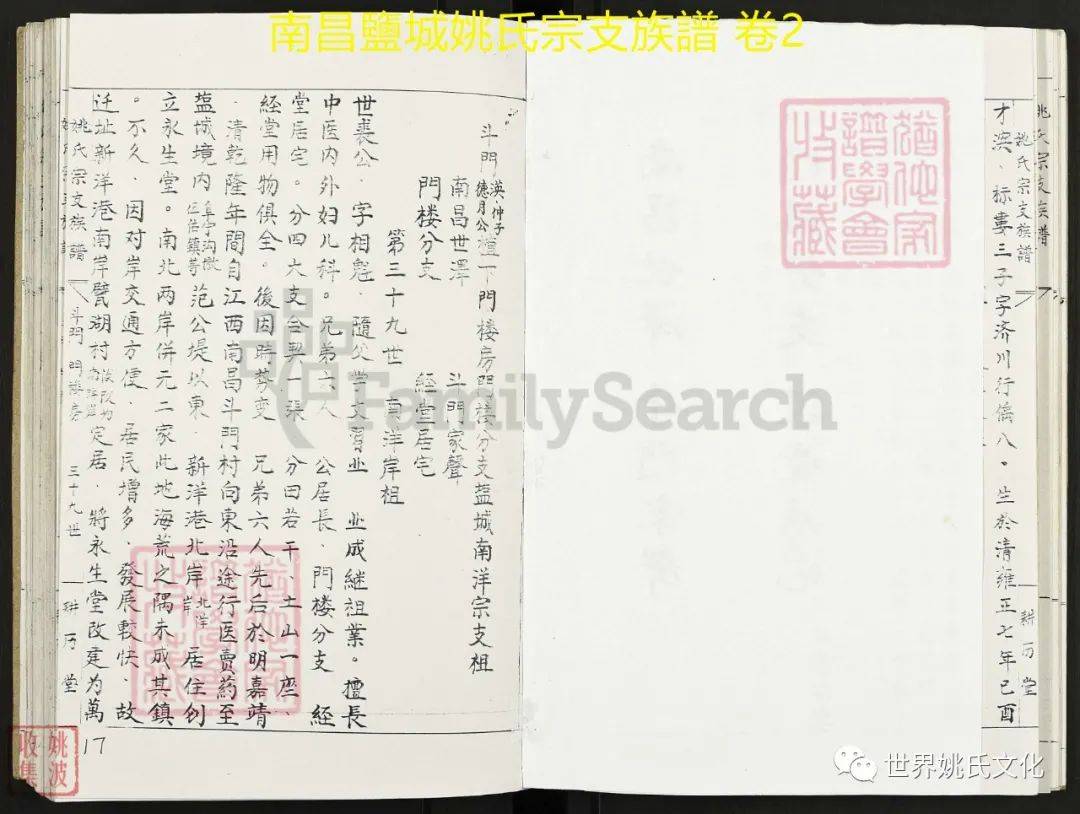 南昌鹽城姚氏宗支族譜 卷2
姚氏宗支族譜
耕历堂
才浜．标婁三子字济川行儐八。生於清雍正七年己酉
斗門渶仲子德月公 門楼房門楼分支塩城南洋宗支祖
南昌世澤 斗門家聲
門楼分支 経堂居宅
第三十九世 南洋岸祖
世裘公．字相魁．隨父学文習业 业成継祖業。擅長
中医内外妇儿科。兄弟六人 公居長．門楼分支 経
堂居宅。分四大支合契一張 分田若干、土山一座、
経堂用物俱全。後因時势变 兄弟六人先后於明嘉靖
．清乾隆年間自江西南昌斗門村向東沿途行医賣药至
塩城境内阜宁沟墩伍佑鎮等范公堤以東．新洋港北岸北洋岸居住创
立永生堂。南北两岸併元二家此地海荒之隅未成其鎮
。不久．因対岸交通方便．居民增多．發展較快、故
迁址新洋港南岸甓湖村 定居．將永生堂改建为萬
姚氏宗支族譜
斗門 門楼房
三十九世
耕历堂
17
姚波收集
FamilySearch
世界姚氏文化